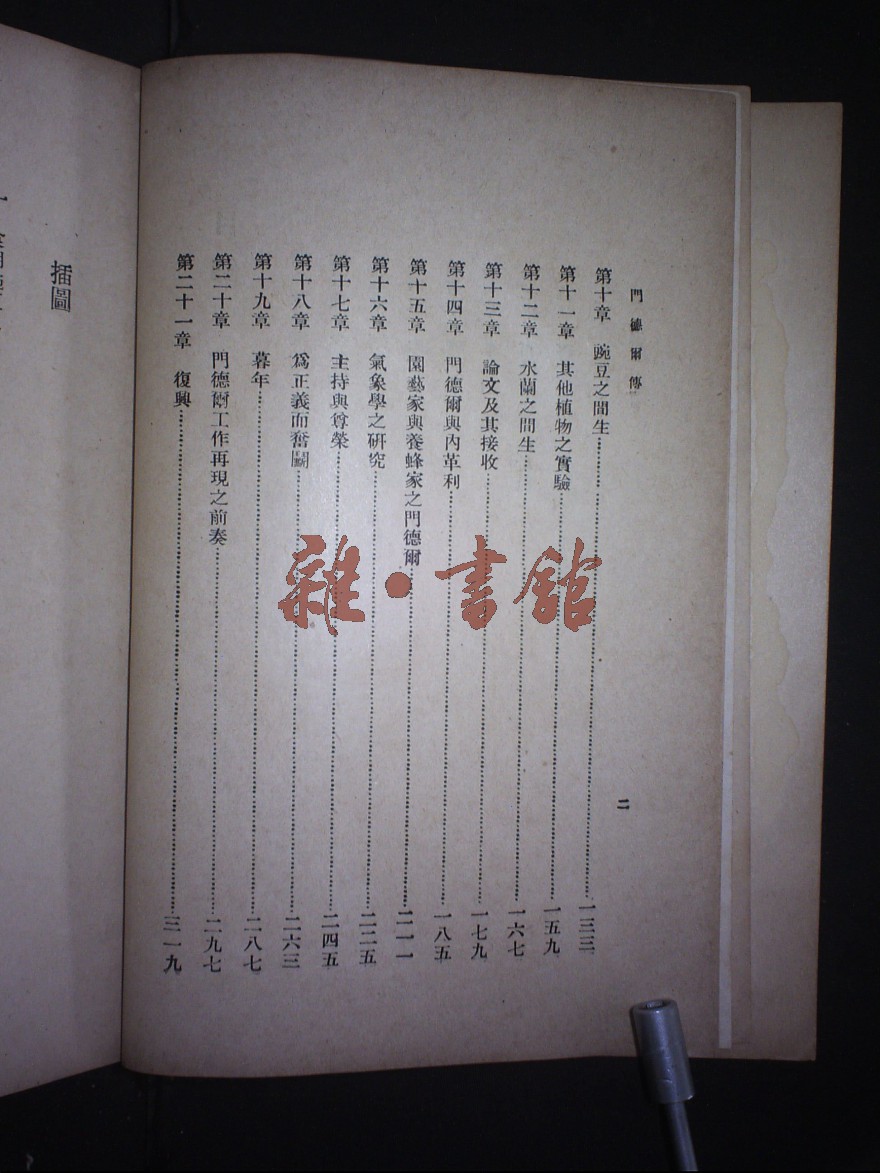 門德爾傳
二
第十章 豌豆之間生 一三三
第十一章 其他植物之實驗 一五九
第十二章 水蘭之間生 一六七
第十三章 論文及其接收 一七九
第十四章 門德爾與內革利 一八五
第十五章 園藝家與養蜂家之門德爾 二一一
第十六章 氣象學之研究 二二五
第十七章 主持與尊榮 二四五
第十八章 爲正義而奮鬭 二六三
第十九章 暮年 二八七
第二十章 門德爾工作再現之前奏 二九七
第二十一章 復興 三一九
插圖
雜·書館